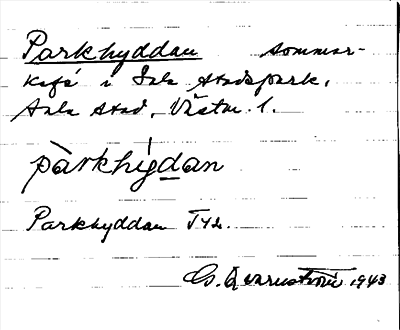 Parkhyddan sommar-
kafé i Sala stadspark,
Sala stad, Västm. l.
pàrkhỳdan
Parkhyddan T42.
G. Qvarnström 1943